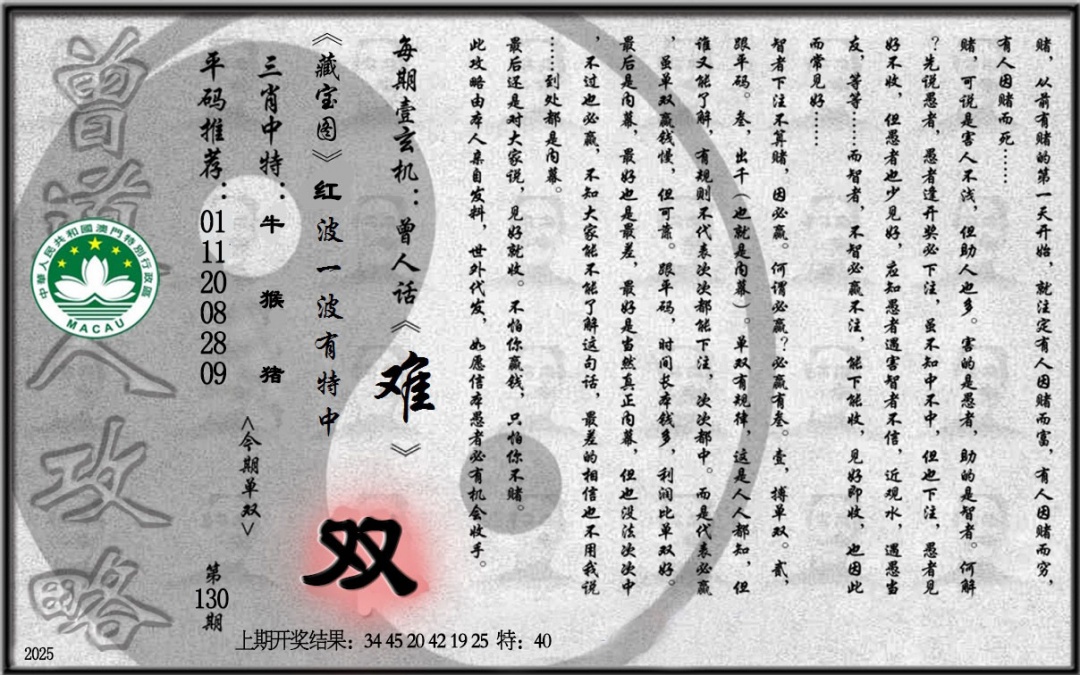 赌，从前有赌的第一天开始，就注定有人因赌而富，有人因赌而穷，
有人因赌而死……
赌，可说是害人不浅，但助人也多。害的是愚者，助的是智者。何解
？先说愚者，愚者逢开奖必下注，虽不知中不中，但也下注，愚者见
好不收，但愚者也少见好，应知愚者遇害智者不信，近观水，遇愚当
友，等等……而智者，不智必赢不注，能下能收，见好即收，也因此
而常见好……
智者下注不算赌，因必赢。何谓必赢？必赢有叁。壹，搏单双。贰，
跟平码。叁，出千（也就是内幕）。单双有规律，这是人人都知，但
谁又能了解，有规则不代表次次都能下注，次次都中。而是代表必赢
，虽单双赢钱慢，但可靠。跟平码，时间长本钱多，利润比单双好。
最后是内幕，最好也是最差，最好是当然真正内幕，但也没法次次中
，不过也必赢，不知大家能不能了解这句话，最差的相信也不用我说
……到处都是内幕。
最后还是对大家说，见好就收。不怕你赢钱，只怕你不赌。
此攻略由本人亲自发料，世外代发，如愿信本愚者必有机会收手。
每期壹玄机：曾人话《难》
《藏宝图》红波一波有特中
三肖中特：牛 猴 猪
<今期单双>
双
平码推荐：
01
11
20
08
28
09
第
130
期
曾道人攻略
中華人民共和國澳門特別行政區
MACAU
上期开奖结果：34 45 20 42 19 25 特：40
2025